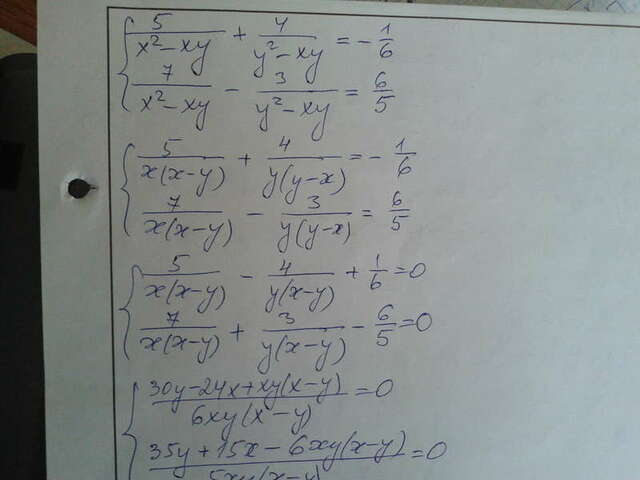 { 5/(x²-xy) + 4/(y²-xy) = -1/6
7/(x²-xy) - 3/(y²-xy) = 6/5
{ 5/(x(x-y)) + 4/(y(y-x)) = -1/6
7/(x(x-y)) - 3/(y(y-x)) = 6/5
{ 5/(x(x-y)) - 4/(y(x-y)) + 1/6 = 0
7/(x(x-y)) + 3/(y(x-y)) - 6/5 = 0
{ (30y-24x+xy(x-y))/(6xy(x-y)) = 0
(35y+15x-6xy(x-y))/(5xy(x-y)) = 0